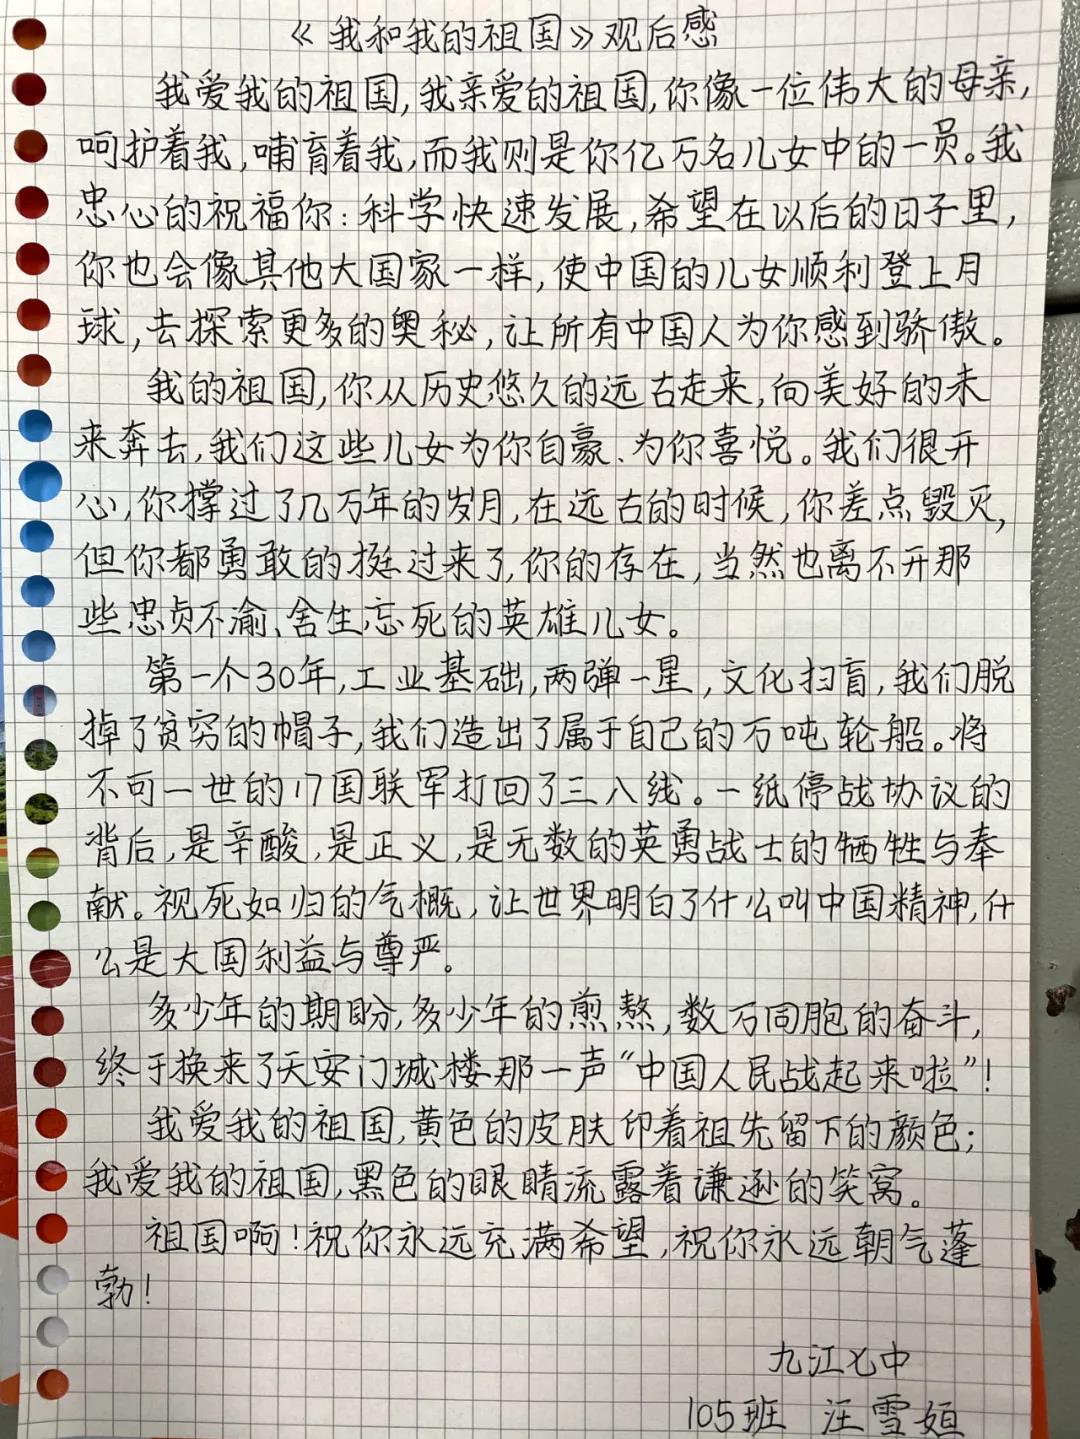 《我和我的祖国》观后感
我爱我的祖国,我亲爱的祖国,你像一位伟大的母亲,
呵护着我,哺育着我,而我则是你亿万名儿女中的一员。我
忠心的祝福你:科学快速发展,希望在以后的日子里,
你也会像其他大国家一样,使中国的儿女顺利登上月
球,去探索更多的奥秘,让所有中国人为你感到骄傲。
我的祖国,你从历史悠久的远古走来,向美好的未
来奔去,我们这些儿女为你自豪、为你喜悦。我们很开
心,你撑过了几万年的岁月,在远古的时候,你差点毁灭,
但你都勇敢的挺过来了,你的存在,当然也离不开那
些忠贞不渝、舍生忘死的英雄儿女。
第一个30年,工业基础,两弹一星,文化扫盲,我们脱
掉了贫穷的帽子,我们造出了属于自己的万吨轮船。将
不可一世的17国联军打回了三八线。一纸停战协议的
背后,是辛酸,是正义,是无数的英勇战士的牺牲与奉
献。视死如归的气概,让世界明白了什么叫中国精神,什
么是大国利益与尊严。
多少年的期盼,多少年的煎熬,数万同胞的奋斗,
终于换来了天安门城楼那一声“中国人民战起来啦”!
我爱我的祖国,黄色的皮肤印着祖先留下的颜色;
我爱我的祖国,黑色的眼睛流露着谦逊的笑窝。
祖国啊!祝你永远充满希望,祝你永远朝气蓬
勃!
九江七中
105班 汪雪姮